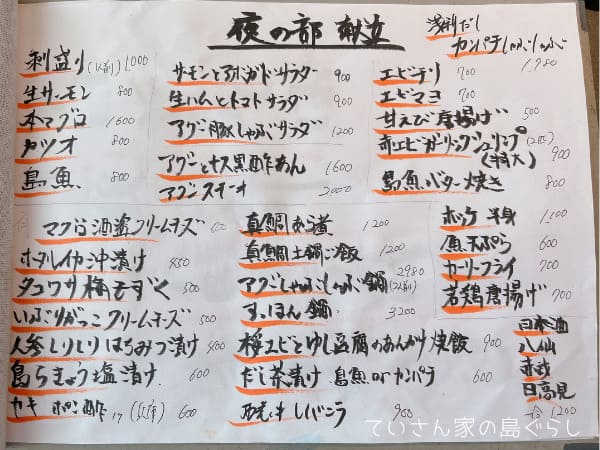 夜の部 献立
浅利だし
カンパチしゃぶしゃぶ
1,980
刺盛り(1人前) 1,000
生サーモン 800
本マグロ 1,600
カツオ 800
島魚 800
サーモンとアボガドサラダ 900
生ハムとトマトサラダ 900
アグー豚しゃぶサラダ 1200
アグーとナス黒酢あん 1600
アグーステーキ 2000
エビチリ 700
エビマヨ 700
甘えび唐揚げ 500
赤エビガーリックシュリンプ(2匹)
(特大) 900
島魚バター焼き 800
マグロ酒盗クリームチーズ
ホタルイカ沖漬け 450
タコワサ梅もずく 500
いぶりがっこクリームチーズ 500
人参しりしりはちみつ漬け 400
島らっきょう塩漬け 600
カキ ポン酢 600
真鯛あら煮 1200
真鯛土鍋ご飯 1200
アグーしゃぶしゃぶ鍋 2980
(2人前)
すっぽん鍋 3200
桜エビとゆし豆腐のあんかけ焼飯 900
だし茶漬け 島魚orカンパチ 600
石光牛しぐれ 900
ホッケ半身 1,100
魚天ぷら 600
カーリーフライ 700
若鶏唐揚げ 700
日本酒
八仙
赤武
日高見
一合 1,200
ていさん家の島ぐらし